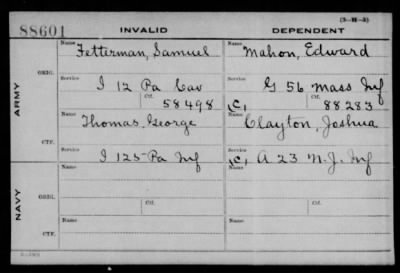 (3-M-3)
88601 INVALID DEPENDENT
Name Name
Fetterman, Samuel Mahon, Edward
ARMY
ORIG.
Service Service
I 12 Pa Cav G 56 Mass Inf
Ctf. Ctf.
58498 C, 88283
Name Name
Thomas, George Clayton, Joshua
CTF.
Service Service
I 125 Pa Inf C, A 23 N.J. Inf
NAVY
Name Name
ORIG.
Ctf. Ctf.
Name Name
CTF.